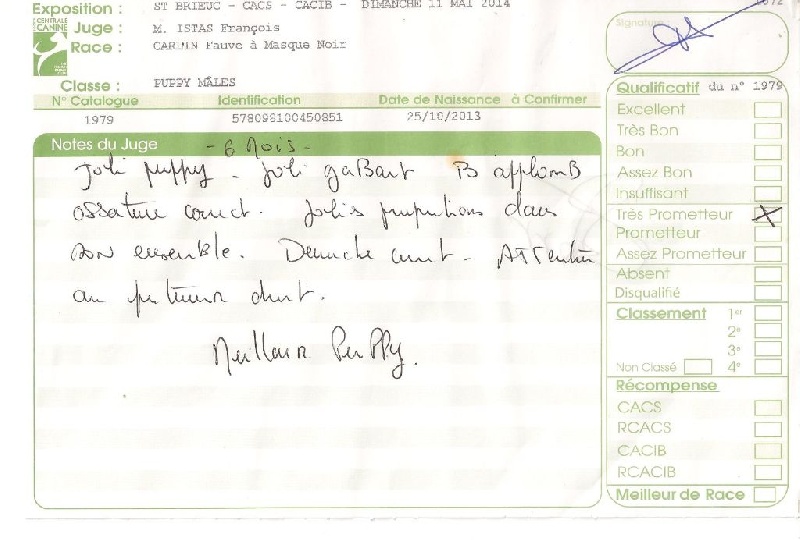 Exposition : ST BRIEUC - CACS - CACIB - DIMANCHE 11 MAI 2014
CENTRALE CANINE
Juge : M. ISTAS François
Race : CARLIN Fauve à Masque Noir
Classe : PUPPY MÂLES
N° Catalogue Identification Date de Naissance à Confirmer
1979 578098100450851 25/10/2013
Signature
Notes du Juge - 6 Mois -
Joli puppy - Joli gaBart B applomB
ossature correct. Jolies proportions dans
son ensemble. Demarche corrct. ATTention
au
Meilleur PuPPy.
Qualificatif du n° 1979
Excellent
Très Bon
Bon
Assez Bon
Insuffisant
Très Prometteur X
Prometteur
Assez Prometteur
Absent
Disqualifié
Classement 1er
2e
3e
Non Classé 4e
Récompense
CACS
RCACS
CACIB
RCACIB
Meilleur de Race